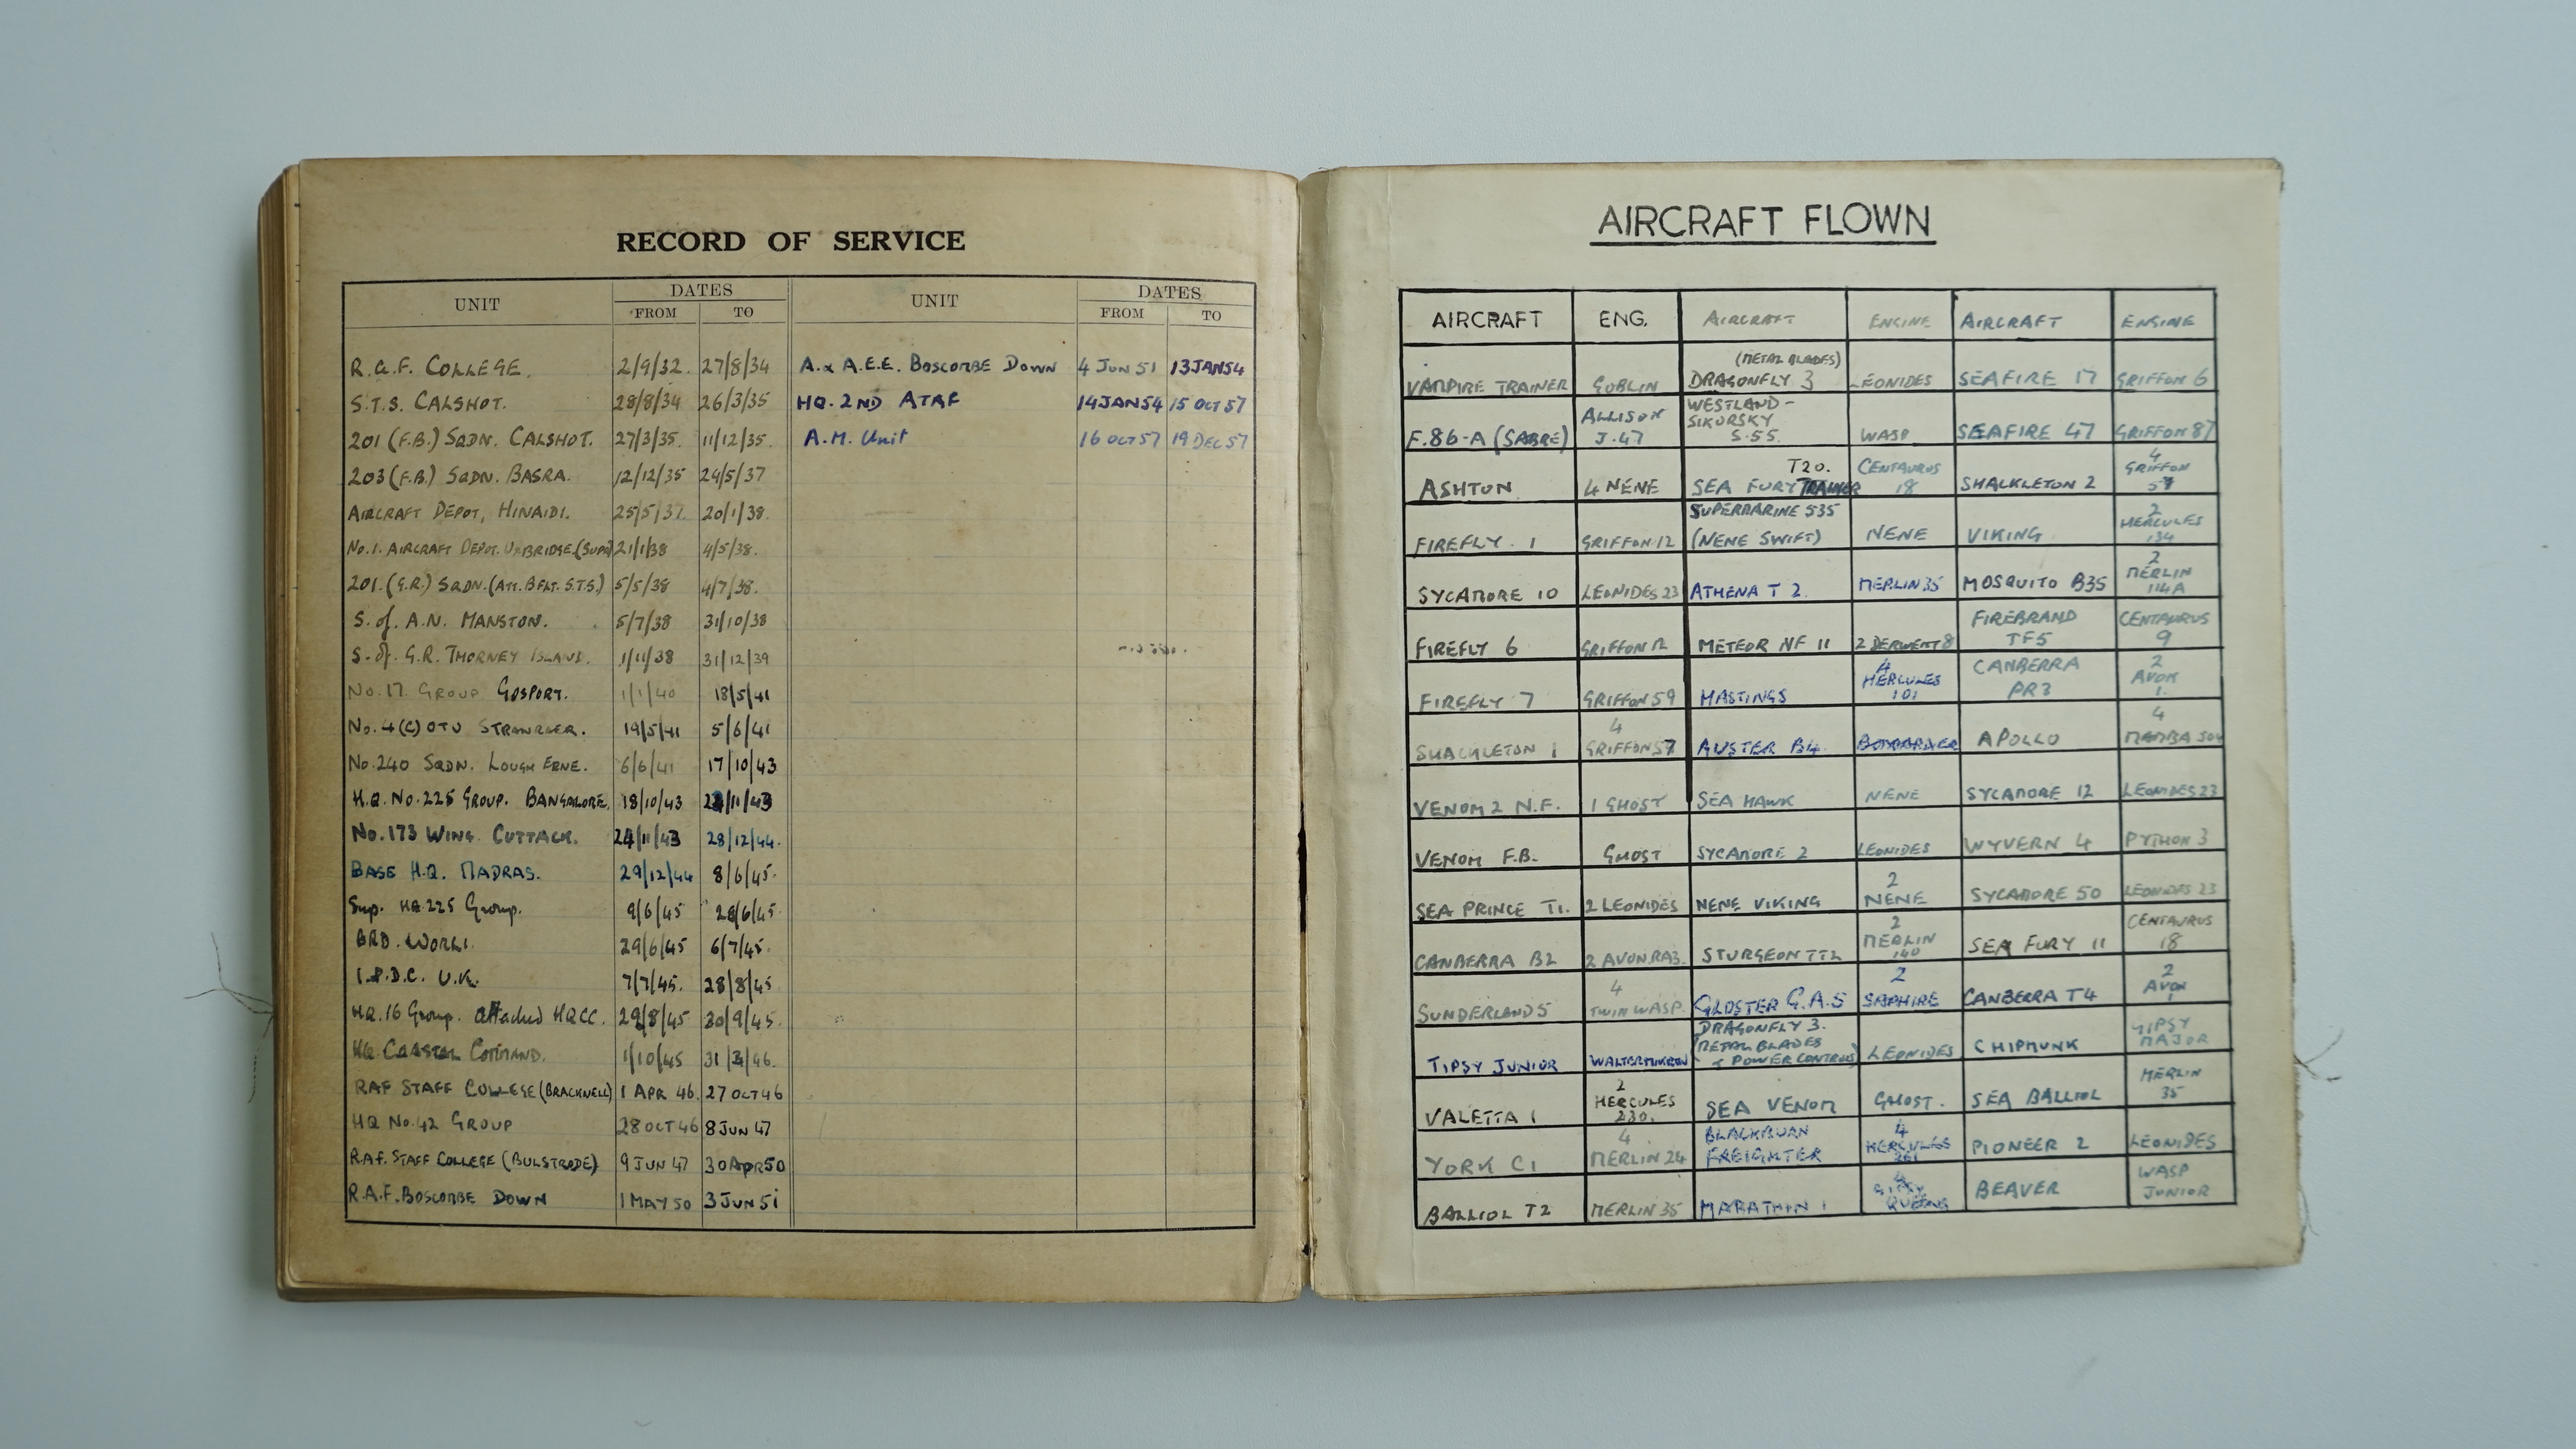 RECORD OF SERVICE
UNIT DATES UNIT DATES
FROM TO FROM TO
R.A.F. COLLEGE. 2/9/32. 27/8/34 A.& A.E.E. BOSCOMBE DOWN 4 JUN 51 13 JAN 54
S.T.S. CALSHOT. 28/8/34 26/3/35 HQ. 2ND ATAF 14 JAN 54 15 OCT 57
201 (F.B.) SQDN. CALSHOT. 27/3/35. 11/12/35. A.M. Unit 16 OCT 57 19 DEC 57
203 (F.B.) SQDN. BASRA. 12/12/35 24/5/37
AIRCRAFT DEPOT, HINAIDI. 25/5/37 20/1/38.
No.1. AIRCRAFT DEPOT. UXBRIDGE.(SUPN) 21/1/38 4/5/38.
201. (G.R.) SQDN. (ATT. B FLT. S.T.S.) 5/5/38 4/7/38.
S. of. A.N. MANSTON. 5/7/38 31/10/38
S. of. G.R. THORNEY ISLAND. 1/11/38 31/12/39
No.17 GROUP GOSPORT. 1/1/40 18/5/41
No.4(C) OTU STRANRAER. 19/5/41 5/6/41
No.240 SQDN. LOUGH ERNE. 6/6/41 17/10/43
H.Q. No.225 GROUP. BANGALORE. 18/10/43 /11/43
No.173 WING. CUTTACK. 24/11/43 28/12/44.
BASE H.Q. MADRAS. 29/12/44 8/6/45.
Sup. HQ 225 Group. 9/6/45 28/6/45
BRD. WORLI. 29/6/45 6/7/45.
1.P.D.C. U.K. 7/7/45. 28/8/45
HQ.16 Group. attached HQCC. 29/8/45 30/9/45.
HQ. COASTAL COMMAND. 1/10/45 31/3/46.
RAF STAFF COLLEGE (BRACKNELL) 1 APR 46. 27 OCT 46
HQ No.42 GROUP 28 OCT 46 8 JUN 47
R.A.F. STAFF COLLEGE (BULSTRODE) 9 JUN 47 30 Apr 50
R.A.F. BOSCOMBE DOWN 1 MAY 50 3 JUN 51
AIRCRAFT FLOWN
AIRCRAFT ENG. AIRCRAFT ENGINE AIRCRAFT ENGINE
(METAL BLADES)
VAMPIRE TRAINER GOBLIN DRAGONFLY 3 LEONIDES SEAFIRE 17 GRIFFON 6
ALLISON WESTLAND-
SIKORSKY
F.86-A (SABRE) J.47 S.55. WASP SEAFIRE 47 GRIFFON 87
T20. CENTAURUS 4 GRIFFON
ASHTON 4 NENE SEA FURY TRAINER 18 SHACKLETON 2 57
SUPERMARINE 535 2 HERCULES
FIREFLY. 1 GRIFFON 12 (NENE SWIFT) NENE VIKING 134
2 MERLIN
SYCAMORE 10 LEONIDES 23 ATHENA T 2. MERLIN 35 MOSQUITO B35 114A
FIREBRAND CENTAURUS
FIREFLY 6 GRIFFON 12 METEOR NF 11 2 DERWENT 8 TF5 9
4 HERCULES CANBERRA 2 AVON
FIREFLY 7 GRIFFON 59 HASTINGS 101 PR3 1.
4 4
SHACKLETON 1 GRIFFON 57 AUSTER B4. BOMBARDIER APOLLO MAMBA 504
VENOM 2 N.F. 1 GHOST SEA HAWK NENE SYCAMORE 12 LEONIDES 23
VENOM F.B. GHOST SYCAMORE 2 LEONIDES WYVERN 4 PYTHON 3
2
SEA PRINCE T1. 2 LEONIDES NENE VIKING NENE SYCAMORE 50 LEONIDES 23
2 MERLIN CENTAURUS
CANBERRA B2 2 AVON RA3. STURGEON TT2 140 SEA FURY 11 18
4 2 2 AVON
SUNDERLAND 5 TWIN WASP. GLOSTER G.A.5 SAPHIRE CANBERRA T4 1
DRAGONFLY 3.
(METAL BLADES GIPSY
TIPSY JUNIOR WALTER MIKRON + POWER CONTROLS) LEONIDES CHIPMUNK MAJOR
2 HERCULES MERLIN
VALETTA 1 230. SEA VENOM GHOST. SEA BALLIOL 35
4 BLACKBURN 4 HERCULES
YORK C1 MERLIN 24 FREIGHTER PIONEER 2 LEONIDES
4 GIPSY WASP
BALLIOL T2 MERLIN 35 MARATHON 1 QUEENS BEAVER JUNIOR